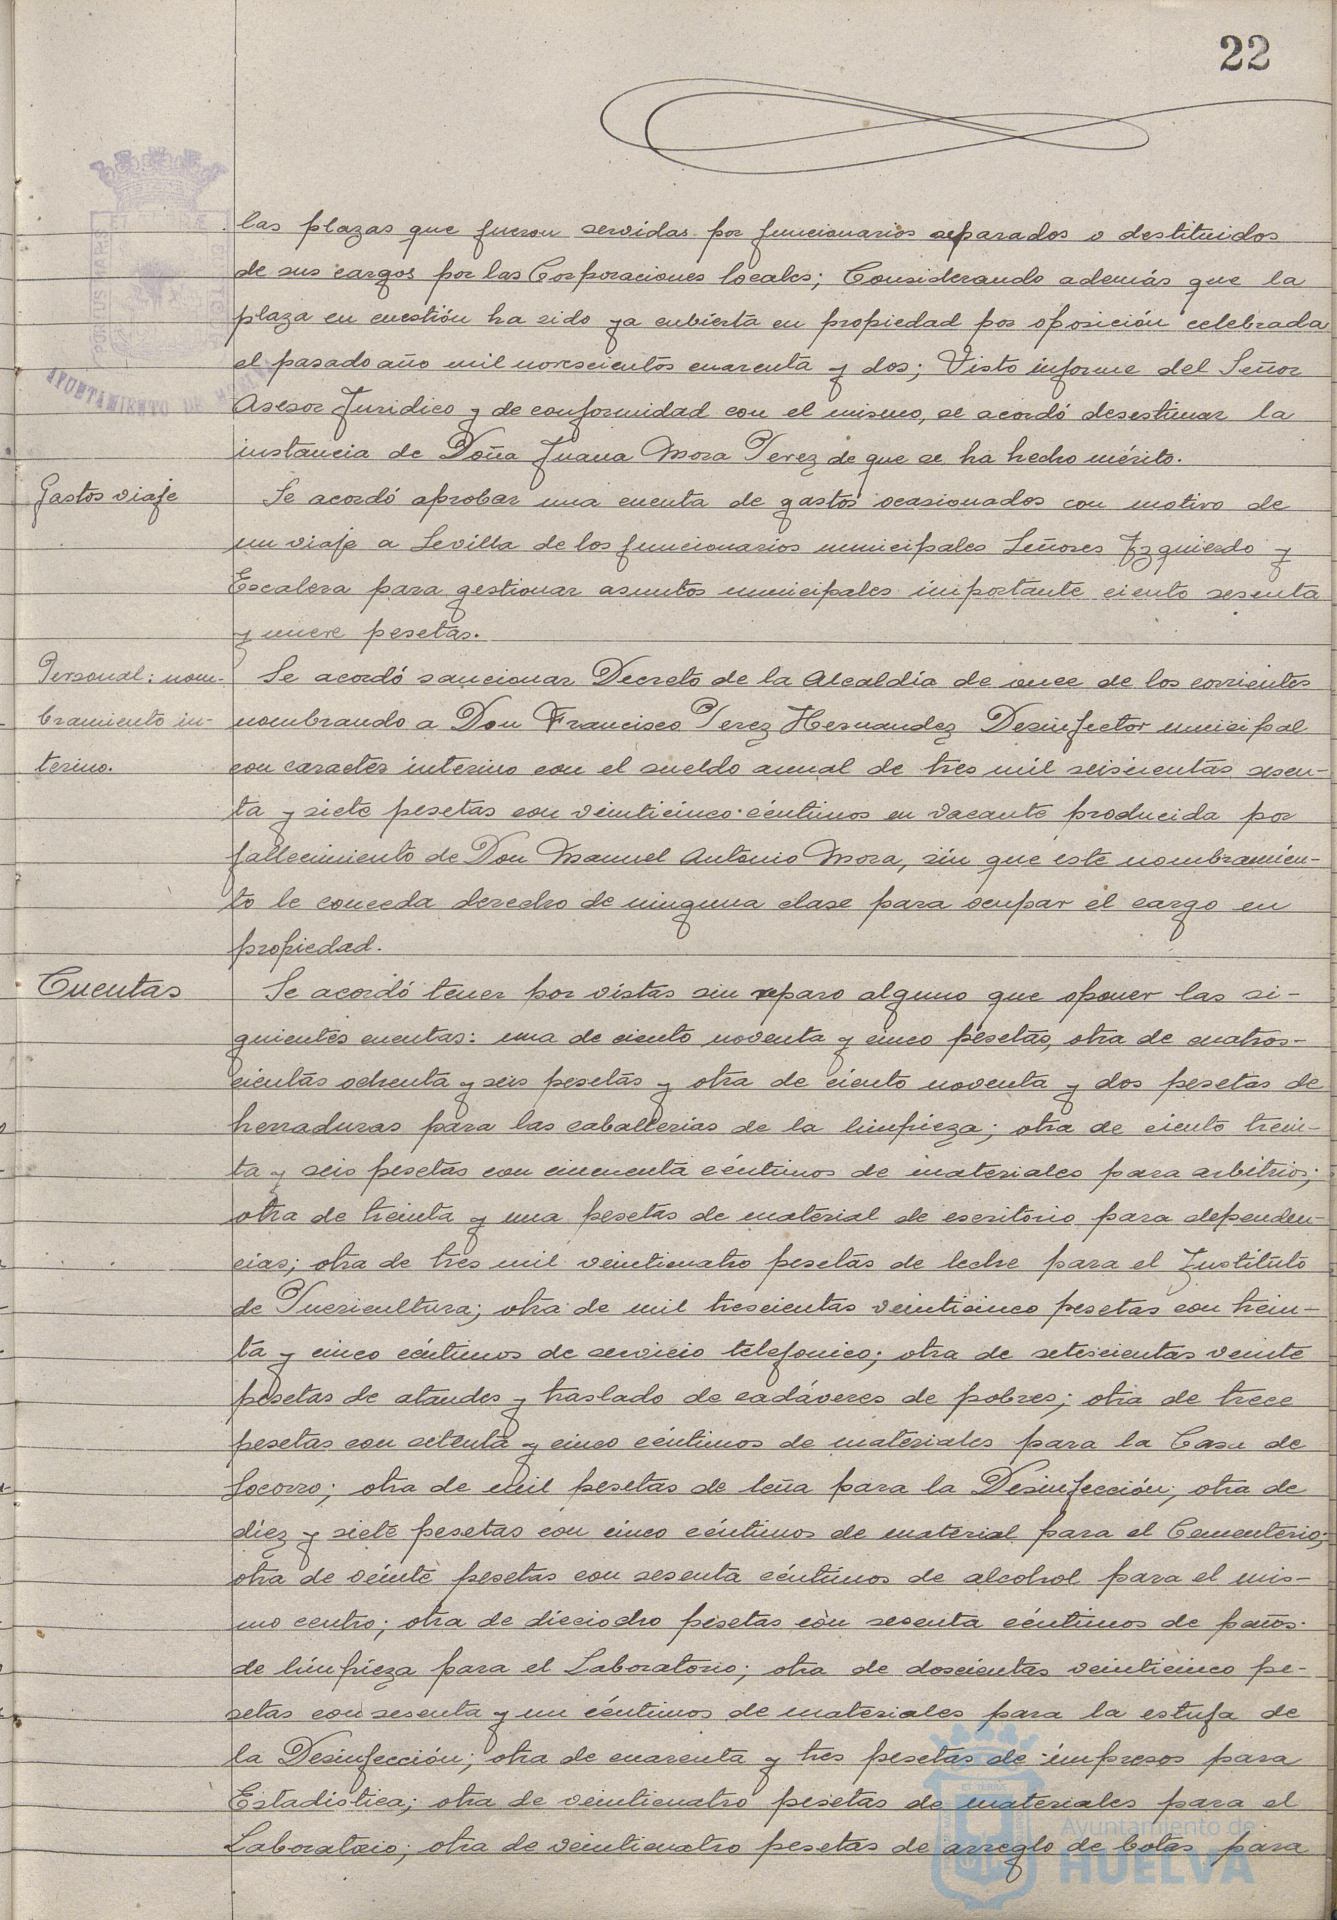 22
las plazas que fueron servidas por funcionarios separados o destituidos
de sus cargos por las Corporaciones locales; Considerando además que la
plaza en cuestión ha sido ya cubierta en propiedad por oposición celebrada
el pasado año mil novescientos cuarenta y dos; Visto informe del Señor
Asesor Juridico y de conformidad con el mismo, se acordó desestimar la
instancia de Doña Juana Mora Perez de que se ha hecho mérito.
Gastos viaje
Se acordó aprobar una cuenta de gastos ocasionados con motivo de
un viaje a Sevilla de los funcionarios municipales Señores Izquierdo y
Escalera para gestionar asuntos municipales importante ciento sesenta
y nueve pesetas.
Personal: nom-
bramiento in-
terino.
Se acordó sancionar Decreto de la Alcaldía de once de los corrientes
nombrando a Don Francisco Perez Hernandez Desinfector municipal
con caracter interino con el sueldo anual de tres mil seiscientas sesen-
ta y siete pesetas con veinticinco céntimos en vacante producida por
fallecimiento de Don Manuel Antonio Mora, sin que este nombramien-
to le conceda derecho de ninguna clase para ocupar el cargo en
propiedad.
Cuentas
Se acordó tener por vistas sin reparo alguno que oponer las si-
guientes cuentas: una de ciento noventa y cinco pesetas, otra de cuatros-
cientas ochenta y seis pesetas y otra de ciento noventa y dos pesetas de
herraduras para las caballerias de la limpieza; otra de ciento trein-
ta y seis pesetas con cincuenta céntimos de materiales para arbitrios;
otra de treinta y una pesetas de material de escritorio para dependen-
cias; otra de tres mil veinticuatro pesetas de leche para el Instituto
de Puericultura; otra de mil trescientas veinticinco pesetas con trein-
ta y cinco céntimos de servicio telefonico; otra de setescientas veinte
pesetas de ataudes y traslado de cadáveres de pobres; otra de trece
pesetas con setenta y cinco céntimos de materiales para la Casa de
Socorro; otra de mil pesetas de leña para la Desinfección; otra de
diez y siete pesetas con cinco céntimos de material para el Cementerio;
otra de veinte pesetas con sesenta céntimos de alcohol para el mis-
mo centro; otra de dieciocho pesetas con sesenta céntimos de paños
de limpieza para el Laboratorio; otra de doscientas veinticinco pe-
setas con sesenta y un céntimos de materiales para la estufa de
la Desinfección; otra de cuarenta y tres pesetas de impresos para
Estadistica; otra de veinticuatro pesetas de materiales para el
Laboratorio; otra de veinticuatro pesetas de arreglo de botas para
PORTUS MARIS
ET TERRAE
CUSTODIA
AYUNTAMIENTO DE HUELVA
Ayuntamiento de
HUELVA